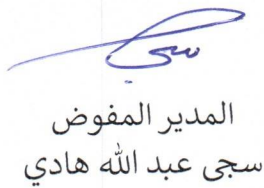 المدير المفوض
سجى عبد الله هادي